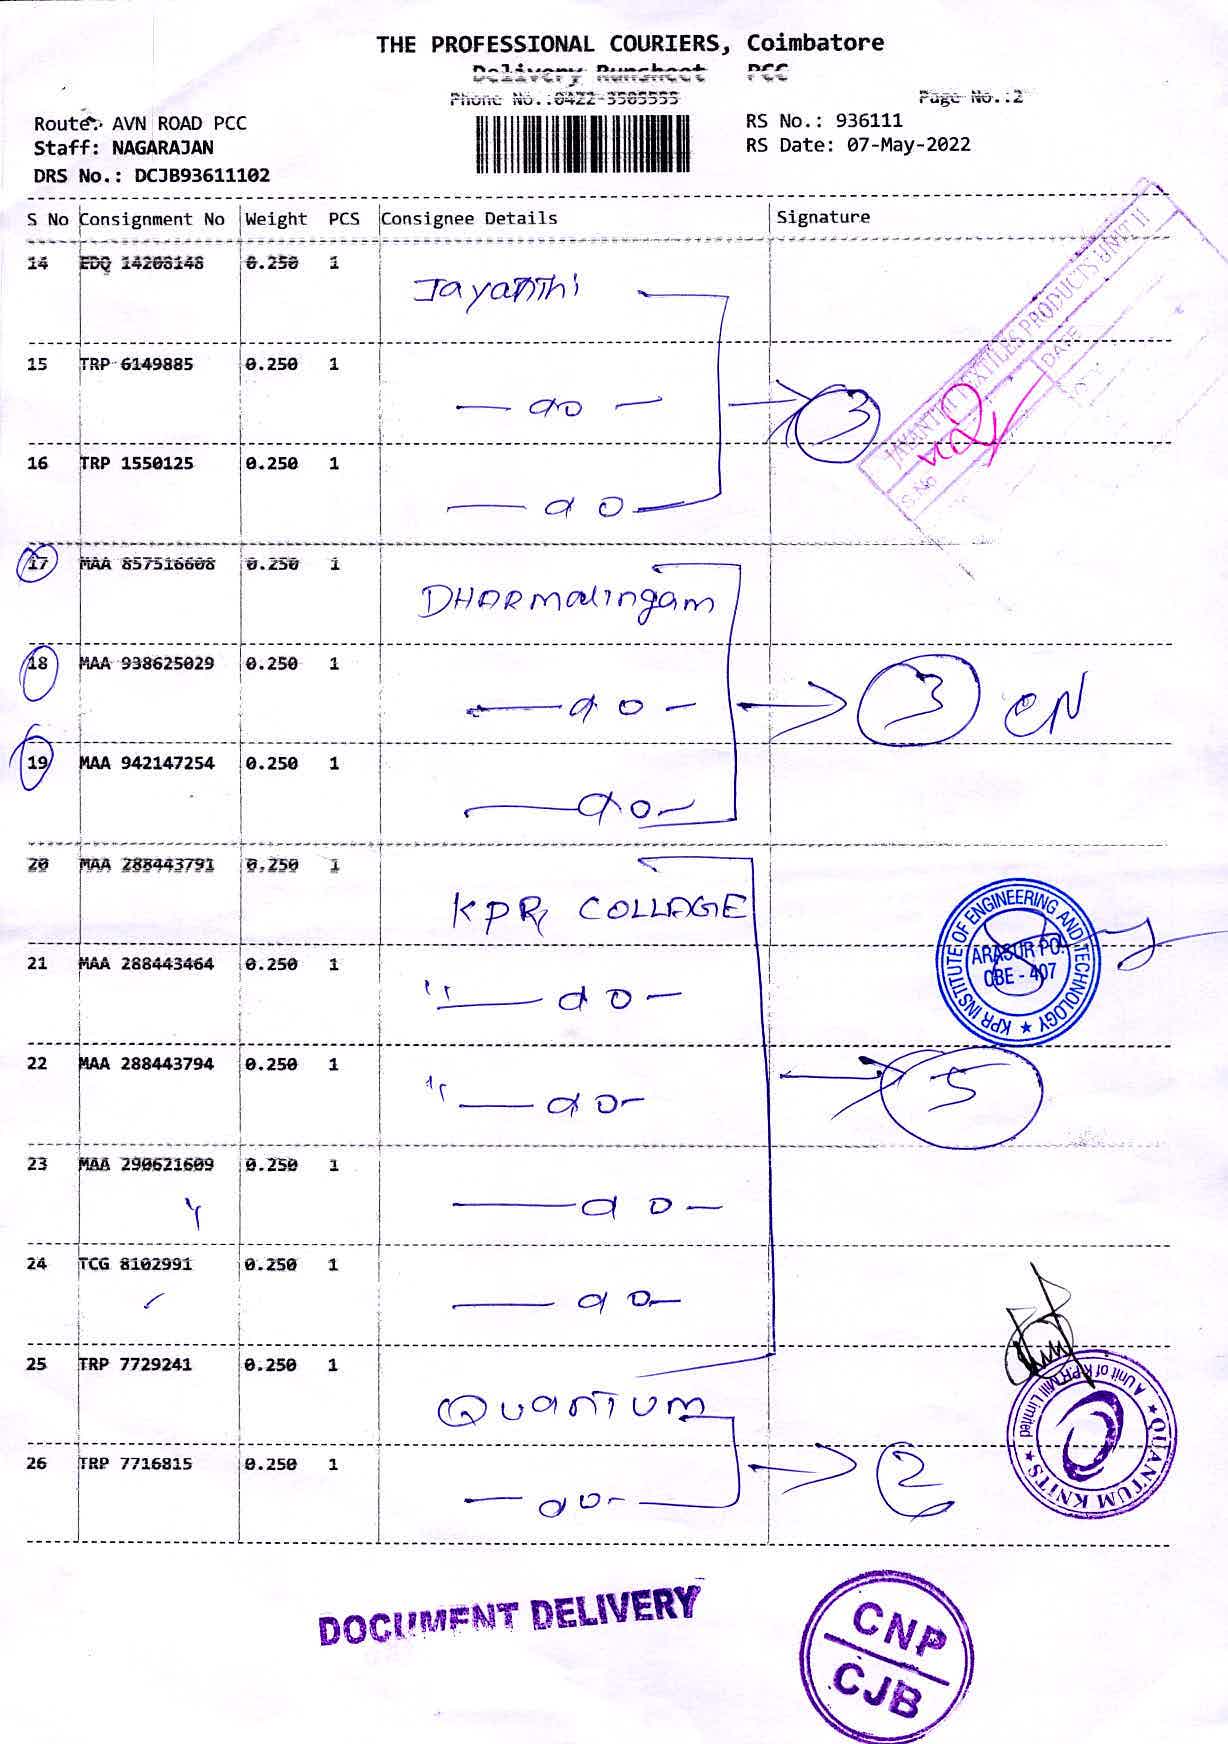 THE PROFESSIONAL COURIERS, Coimbatore
Delivery Runsheet PCC
Phone No.:0422-3505555
Page No.:2
Route: AVN ROAD PCC
RS No.: 936111
Staff: NAGARAJAN
RS Date: 07-May-2022
DRS No.: DCJB93611102
S No Consignment No Weight PCS Consignee Details Signature
14 EDQ 14208148 0.250 1
Jayanthi
JAYANTHI TEXTILES PRODUCTS UNIT II
S.No
DATE
15 TRP 6149885 0.250 1
— do —
3
16 TRP 1550125 0.250 1
— do —
17 MAA 857516608 0.250 1
DHARMalingam
18 MAA 938625029 0.250 1
— do —
3 CN
19 MAA 942147254 0.250 1
— do —
20 MAA 288443791 0.250 1
KPR COLLAGE
KPR INSTITUTE OF ENGINEERING AND TECHNOLOGY
ARASUR PO.
CBE - 407
21 MAA 288443464 0.250 1
" — do —
22 MAA 288443794 0.250 1
" — do —
5
23 MAA 290621609 0.250 1
— do —
24 TCG 8102991 0.250 1
— do —
25 TRP 7729241 0.250 1
Quantum
QUANTUM KNITS
A Unit of KPR Mill Limited
26 TRP 7716815 0.250 1
— do —
2
DOCUMENT DELIVERY
CNP
CJB